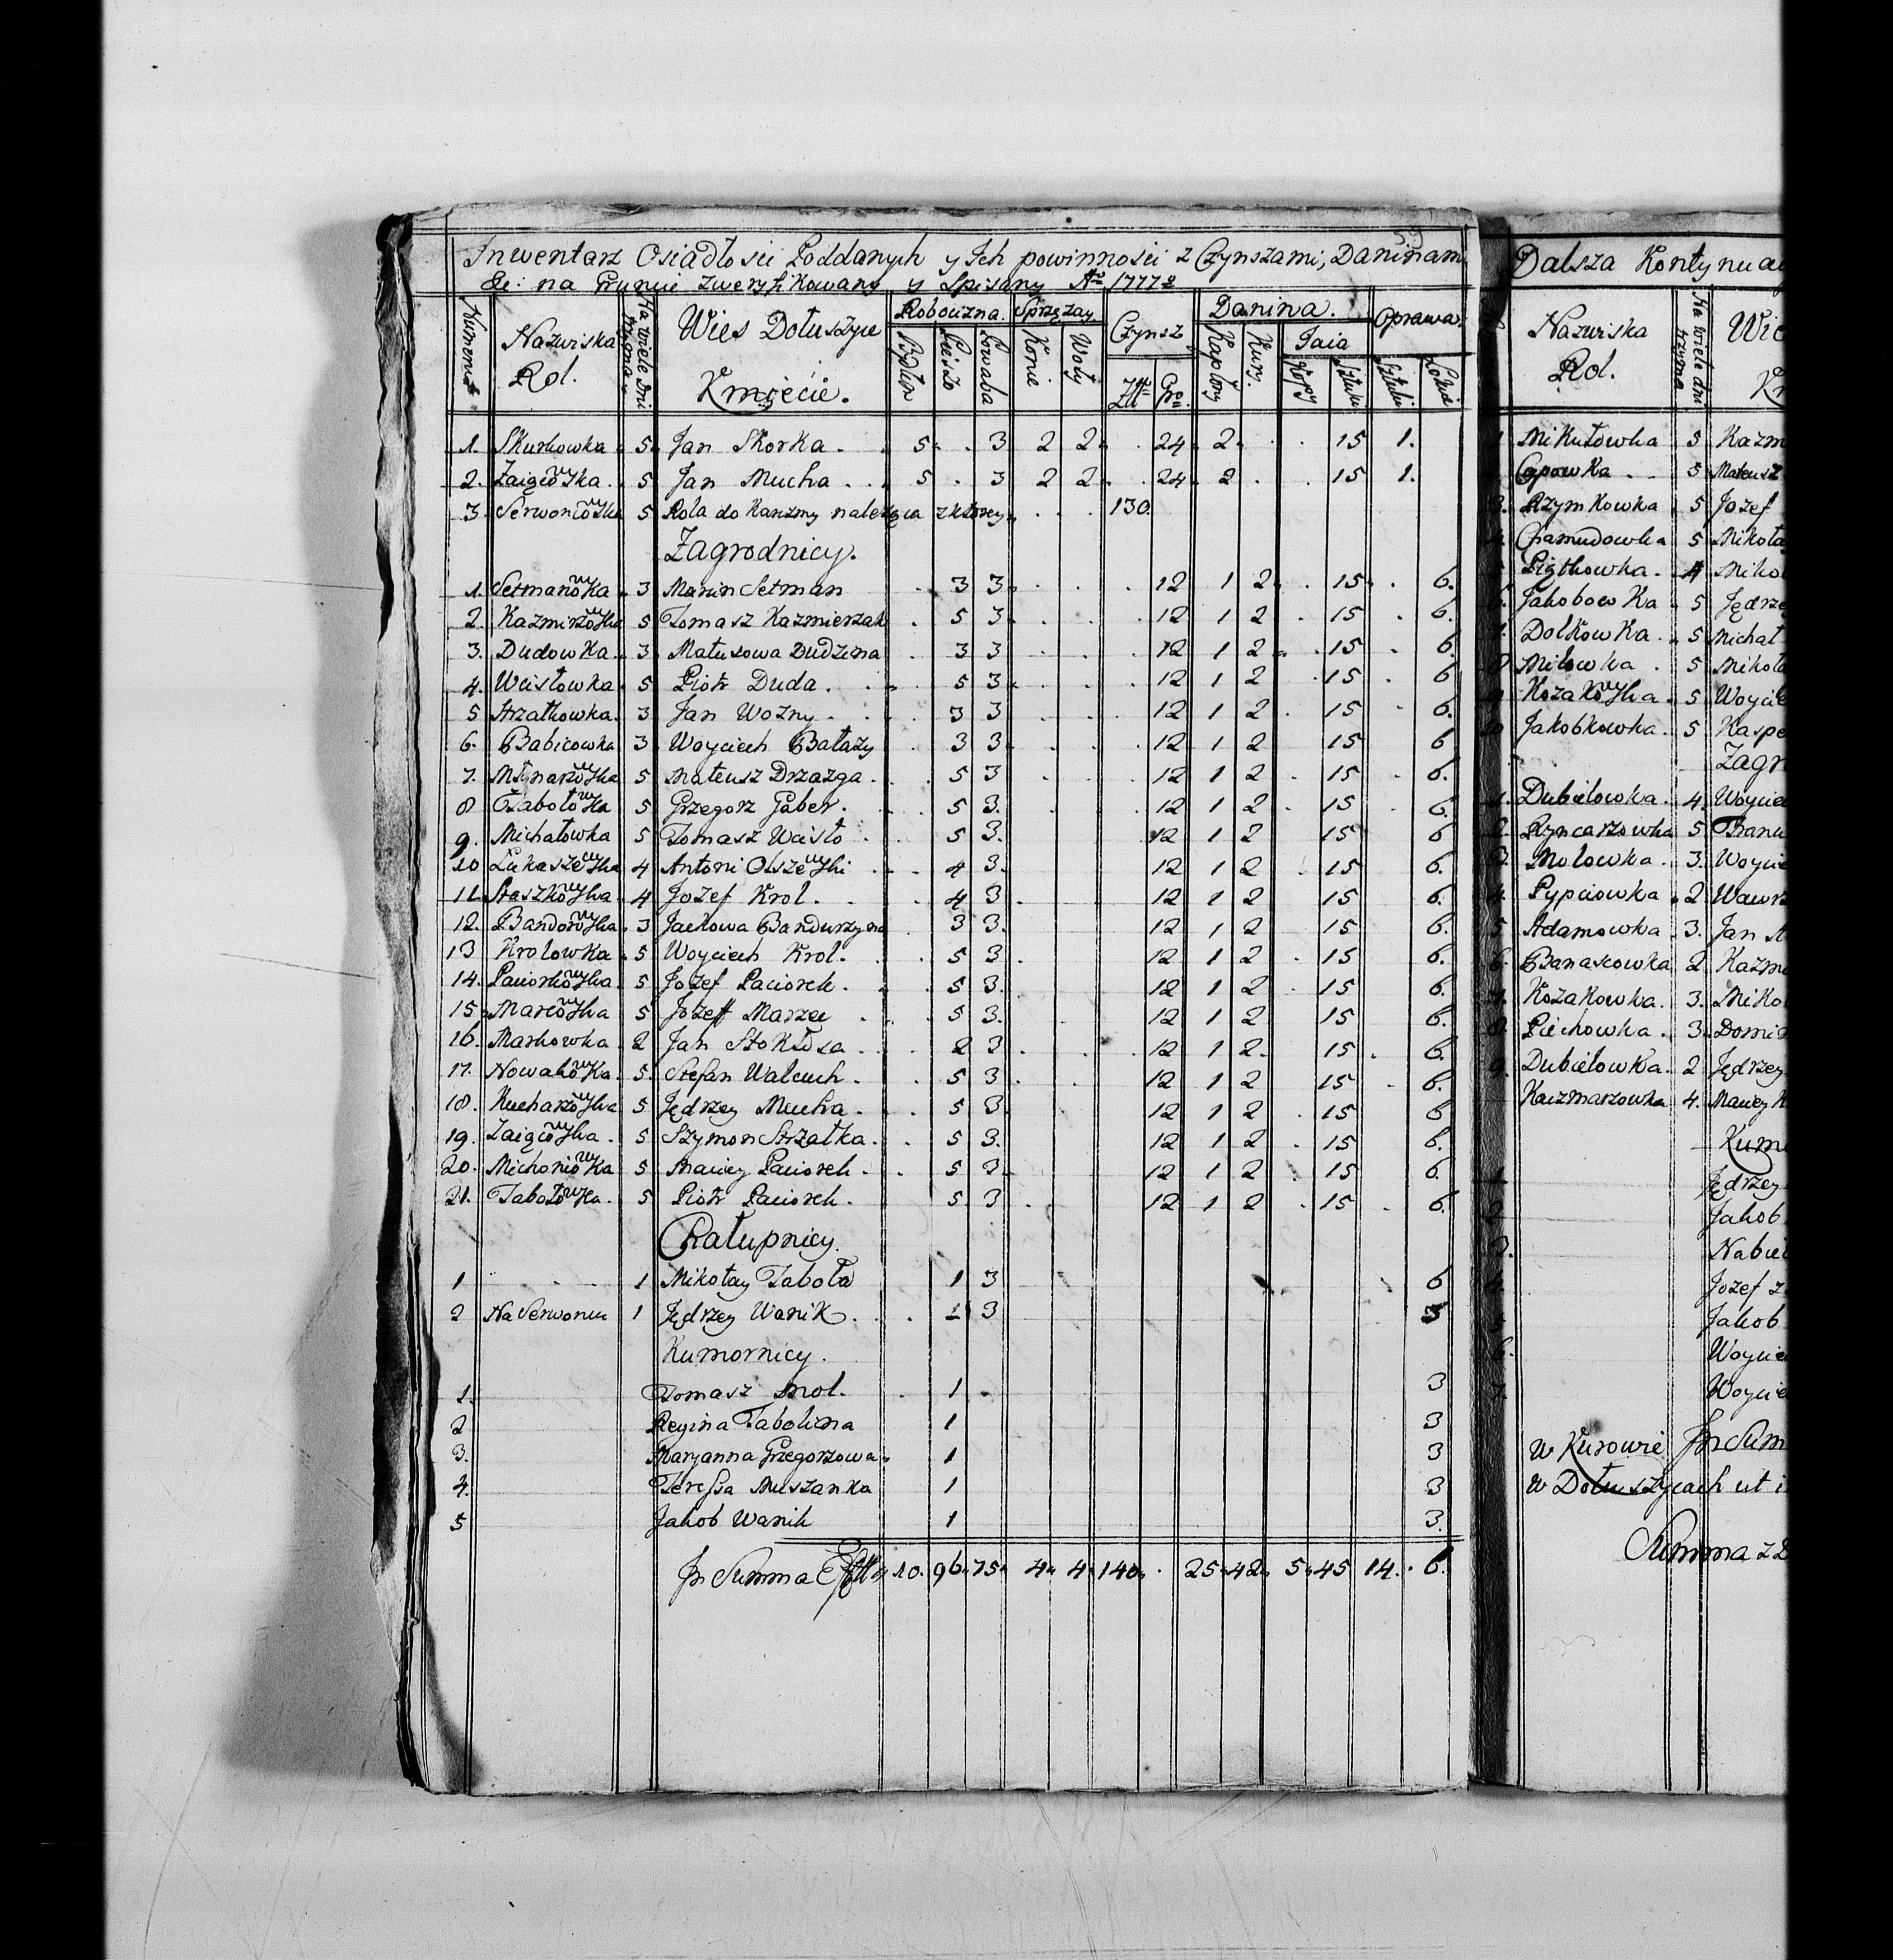 59
Inwentarz Osiadłosci Poddanych y Ich powinnosci z Czynszami, Daninami
&c: na Gruncie zweryfikowany y Spisany Aº 1777º
Numerus Nazwiska Rol. Na wiele Dni trzyma Wies Dołuszyce Kmiecie. Robocizna. Sprzężay Czynsz Danina. Oprawa.
Bydłem Pieszo Powaba Konie Woły Złł Gro Kapłony Kury. Jaia Kopy Sztuki Sztuki Łokcie
1. Skurkowka 5 Jan Skorka 5 . 3 2 2 . 24 2 . . 15 1.
2. Zaigcowska 5 Jan Mucha 5 . 3 2 2 . 24 2 . . 15 1.
3. Serwoniowska 5 Rola do Karczmy należąca z ktorey . . . 130
Zagrodnicy.
1. Setmanowka 3 Marcin Setman . 3 3 . . . 12 1 2 . 15 . 6.
2. Kazmirzowska 5 Tomasz Kazmierzak . 5 3 . . . 12 1 2 . 15 . 6.
3. Dudowka 3 Matusowa Dudzina . 3 3 . . . 12 1 2 . 15 . 6
4. Wcisłowka 5 Piotr Duda . 5 3 . . . 12 1 2 . 15 . 6
5 Strzałkowka 3 Jan Wozny 3 3 . . . 12 1 2 . 15 . 6.
6. Babicowka 3 Woyciech Bałazy . 3 3 . . . 12 1 2 15 6
7. Młynarzowska 5 Mateusz Drzazga . 5 3 . . 12 1 2 . 15 . 6.
8 Tabołowska 5 Grzegorz Gaber . 5 3. 12 1 2 . 15 . 6.
9. Michałowka 5 Tomasz Wcisło . 5 3. 12 1 2 15 6
10 Łukaszewska 4 Antoni Olszewski . 4 3. 12 1 2 . 15 6.
11. Staszkowska 4 Jozef Krol . 4 3 . 12 1 2 15 6.
12. Bandorowska 3 Jackowa Bandurzyna . 3 3. 12 1 2 15 6.
13 Krolowka 5 Woyciech Krol . 5 3 . 12 1 2 . 15 6.
14. Paciorkowska 5 Jozef Paciorek . 5 3. 12 1 2 . 15 6.
15 Marcowska 5 Jozeff Marzec . 5 3. 12 1 2 15 6.
16. Markowka 2 Jan Stokłosa 2 3 . . . 12 1 2. 15 . 6.
17. Nowakowka 5 Stefan Walcuch . 5 3 . 12 1 2 15 . 6.
18. Kucharzowska 5 Jędrzey Mucha . 5 3. 12 1 2 . 15 6
19. Zaigcowska 5 Szymon Strzałka . 5 3. 12 1 2 . 15 6.
20. Michoniowka 5 Maciey Paciorek . 5 3 12 1 2 15 6.
21. Tabołowska 5 Piotr Paciorek . 5 3 . 12 1 2 . 15 . 6.
Chałupnicy.
1 1 Mikołay Taboła 1 3 6
2 Na Serwoniu 1 Jędrzey Wanik . 1 3 3
Kumornicy.
1. Tomasz Mol. . 1 . 3
2 Regina Tabolina 1 3
3. Maryanna Grzegorzowa 1 3
4. Teressa Muszanka 1 3
5 Jakob Wanik 1 3.
In Summa 10. 96. 75. 4. 4. 140. . 25. 42. 5. 45 14. 6.
Dalsza Kontynuacy
Nazwiska Rol. Na wiele dni trzyma Wie
1 Mikułowka 5 Kazm
Capowka 5 Mateusz
3. Rzymkowka 5 Jozef
4. Chamudowka 5 Mikołay
5 Piątkowka 4 Mikoł
6. Jakobowka 5 Jędrze
7. Dolkowka 5 Michał
8 Miłowka 5 Mikoła
9 Kozakowska 5 Woycie
10 Jakobkowka 5 Kaspe
Zagr
1. Dubielowka 4. Woycie
2. Ryncarzowka 5 Franc
3. Molowka 3. Woycie
4. Pypciowka 2 Wawrz
5 Adamowka 3. Jan
6. Banascowka 2 Kazm
7. Kozakowka 3. Miko
8. Piechowka 3. Domi
9. Dubielowka 2 Jędrzey
Kaczmarzowka 4. Maciey K
Kumo
1. Jędrzey
2. Jakob
3. Nabiel
4. Jozef z
5. Jakob
6. Woycie
7. Woycie
w Kurowie In Sum
w Dołuszycach ut i
Summa z D